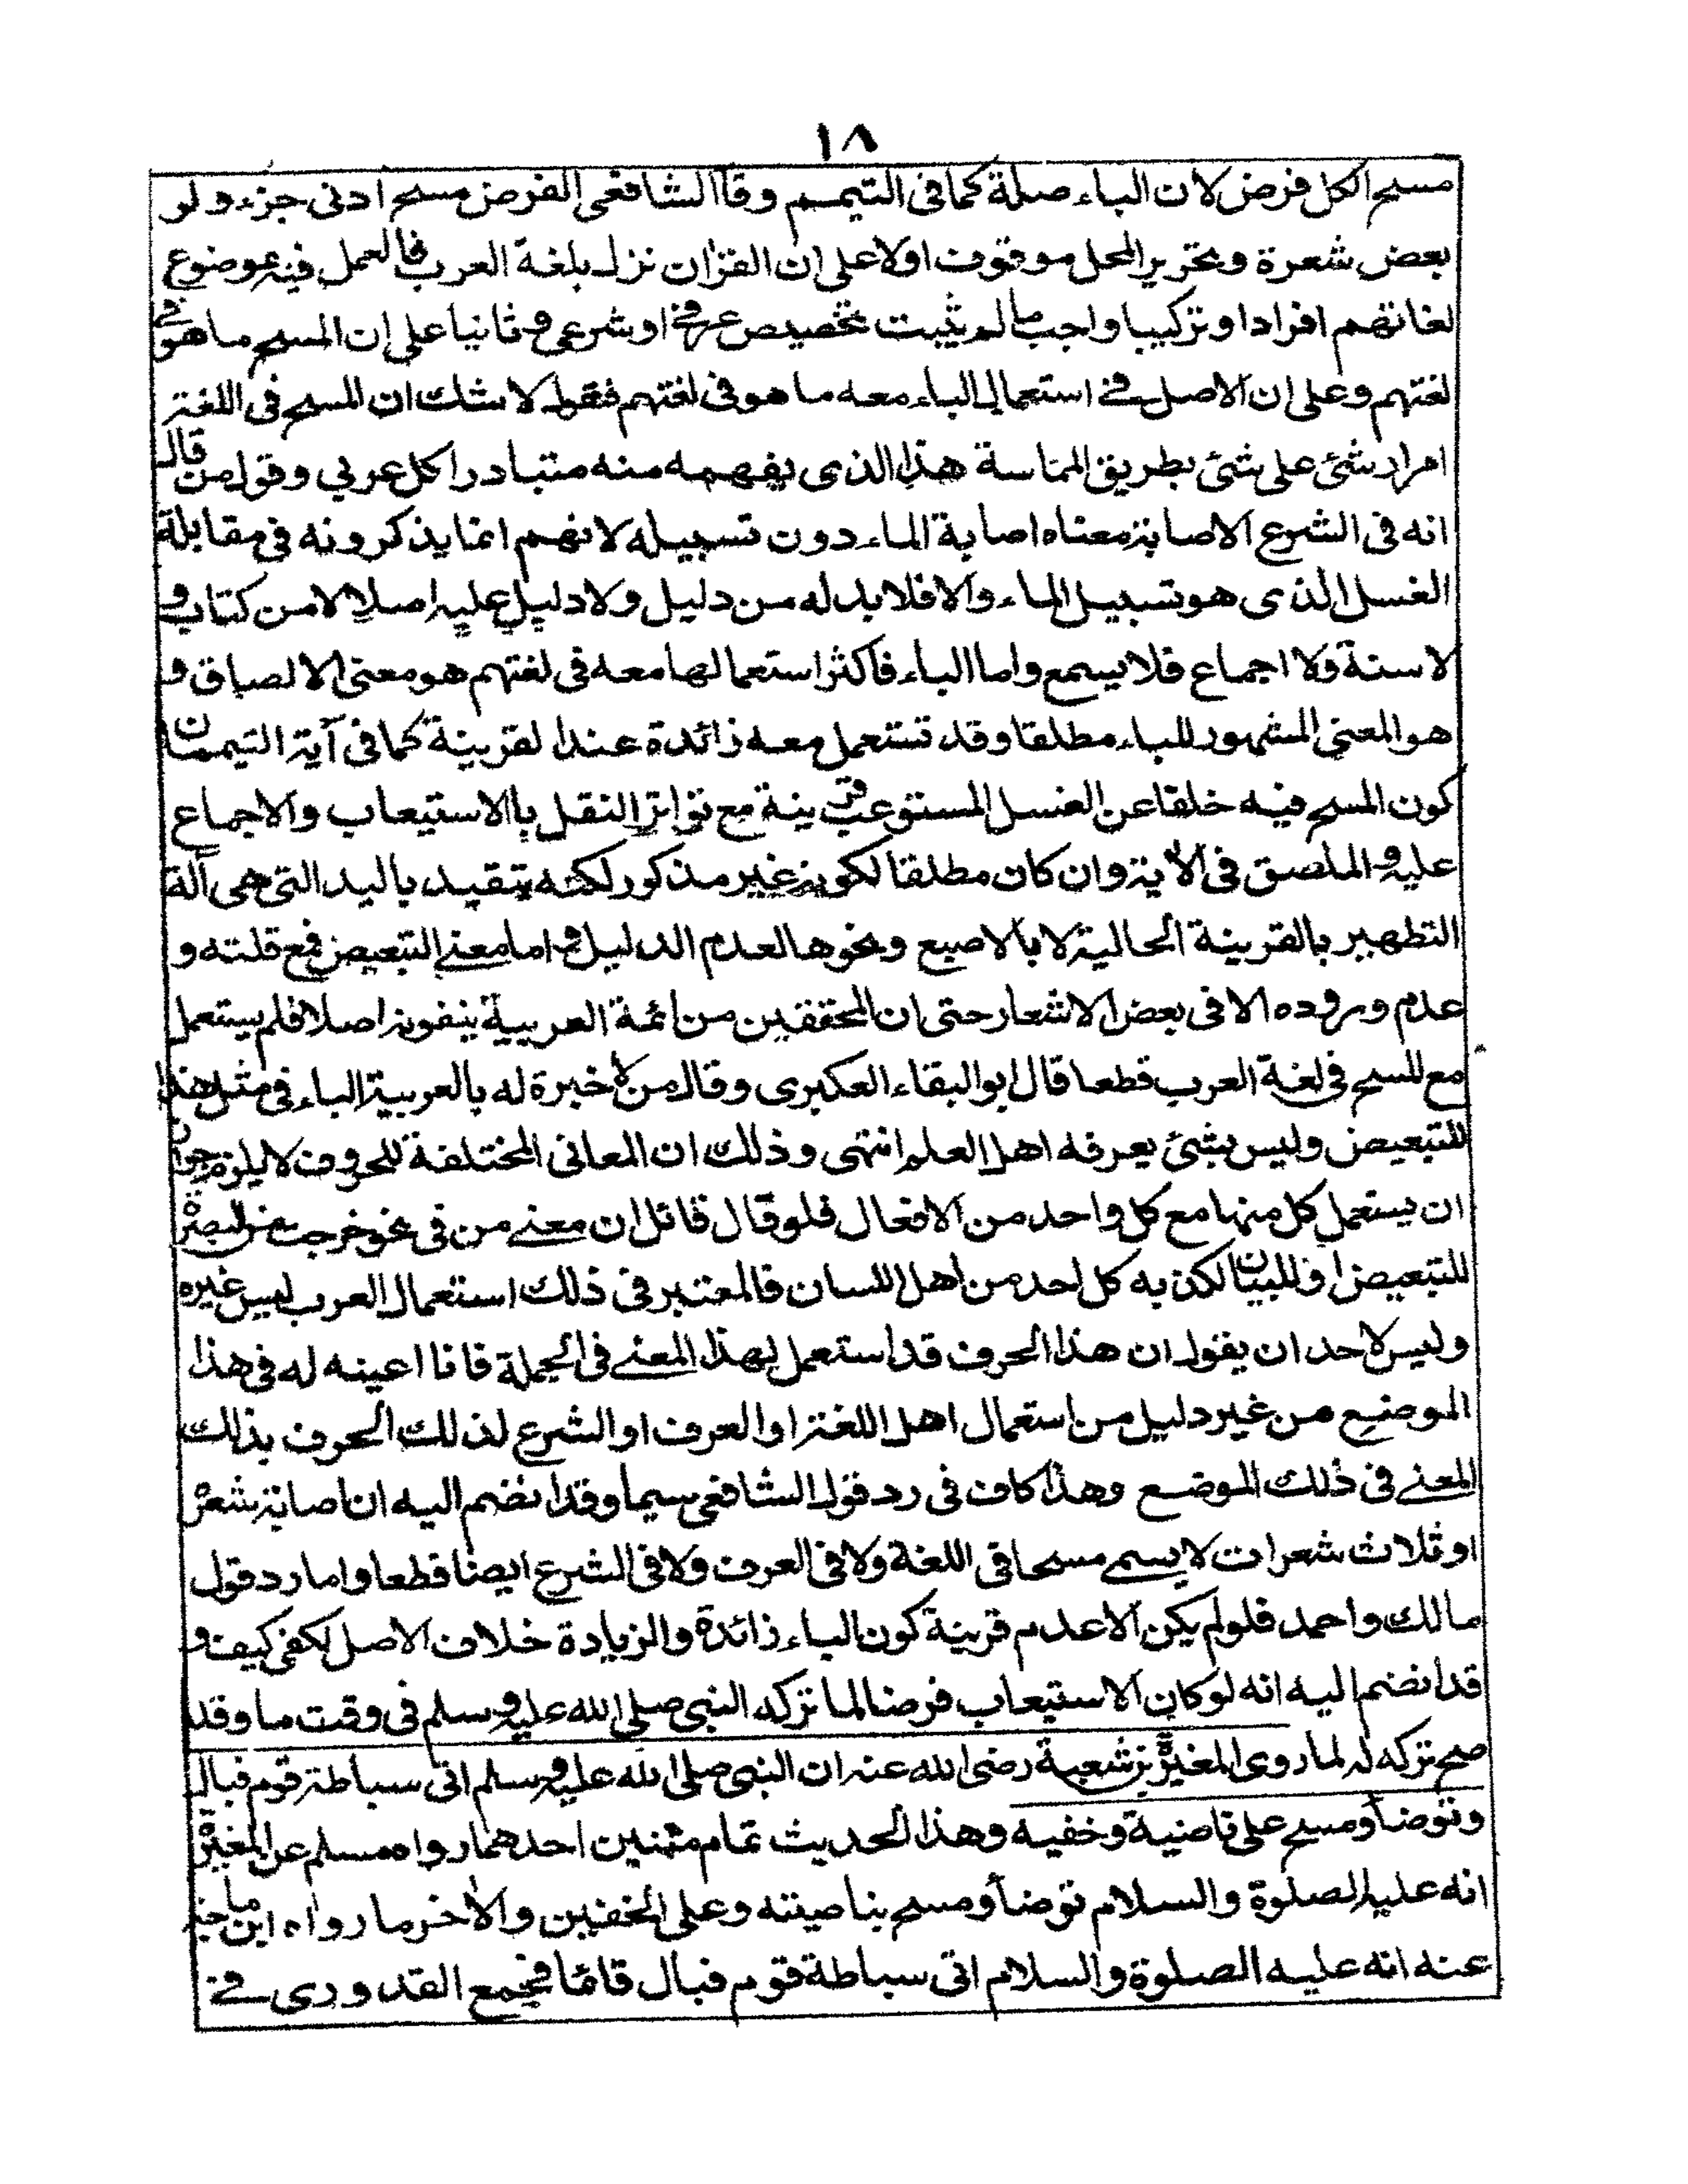 ١٨
مسح الكل فرض لان الباء صلة كما فى التيمم وقال الشافعى الفرض مسح ادنى جزء ولو
بعض شعرة وتحرير المحل موقوف اولا على ان القرآن نزل بلغة العرب فالعمل فيه بموضوع
لغاتهم افرادا وتركيبا واجب ما لم يثبت تخصيص عرفى او شرعى وثانيا على ان المسح ما هو فى
لغتهم وعلى ان الاصل فى استعمال الباء معه ما هو فى لغتهم فنقول لا شك ان المسح فى اللغة
امرار شئ على شئ بطريق المماسة هذا الذى يفهمه منه متبادرا كل عربي وقول من قال
انه فى الشرع الاصابة معناه اصابة الماء دون تسييله لانهم انما يذكرونه فى مقابلة
الغسل الذى هو تسييل الماء والا فلا بد له من دليل ولا دليل عليه اصلا لا من كتاب و
لا سنة ولا اجماع فلا يسمع واما الباء فاكثر استعمالها معه فى لغتهم هو معنى الالصاق و
هو المعنى المشهور للباء مطلقا وقد تستعمل معه زائدة عند القرينة كما فى آية التيمم فان
كون المسح فيه خلفا عن الغسل المستوعب قرينة مع تواتر النقل بالاستيعاب والاجماع
عليه والملصق فى الآية وان كان مطلقا لكونه غير مذكور لكنه يتقيد باليد التى هى آلة
التطهير بالقرينة الحالية لا بالاصبع ونحوها لعدم الدليل واما معنى التبعيض فمع قلته و
عدم وروده الا فى بعض الاشعار حتى ان المحققين من ائمة العربية ينفونه اصلا فلم يستعمل
مع المسح فى لغة العرب قطعا قال ابو البقاء العكبرى وقال من لا خبرة له بالعربية الباء فى مثل هذا
للتبعيض وليس بشئ يعرفه اهل العلم انتهى وذلك ان المعانى المختلفة للحروف لا يلزم جواز
ان يستعمل كل منها مع كل واحد من الافعال فلو قال قائل ان معنى من فى نحو خرجت من البصرة
للتبعيض او للبيان لكذبه كل احد من اهل اللسان فالمعتبر فى ذلك استعمال العرب ليس غيره
وليس لاحد ان يقول ان هذا الحرف قد استعمل لهذا المعنى فى الجملة فانا اعينه له فى هذا
الموضع من غير دليل من استعمال اهل اللغة او العرف او الشرع لذلك الحرف بذلك
المعنى فى ذلك الموضع وهذا كاف فى رد قول الشافعى سيما وقد انضم اليه ان اصابة شعرة
او ثلاث شعرات لا يسمى مسحا فى اللغة ولا فى العرف ولا فى الشرع ايضا قطعا واما رد قول
مالك واحمد فلو لم يكن الا عدم قرينة كون الباء زائدة والزيادة خلاف الاصل لكفى كيف و
قد انضم اليه انه لو كان الاستيعاب فرضا لما تركه النبى صلى الله عليه وسلم فى وقت ما وقد
صح تركه له لما روى المغيرة بن شعبة رضى الله عنه ان النبى صلى الله عليه وسلم اتى سباطة قوم فبال
وتوضأ ومسح على ناصية وخفيه وهذا الحديث تمام متنين احدهما رواه مسلم عن المغيرة
انه عليه الصلوة والسلام توضأ ومسح بناصيته وعلى الخفين والاخر ما رواه ابن ماجة
عنه انه عليه الصلوة والسلام اتى سباطة قوم فبال قائما فجمع القدورى فى